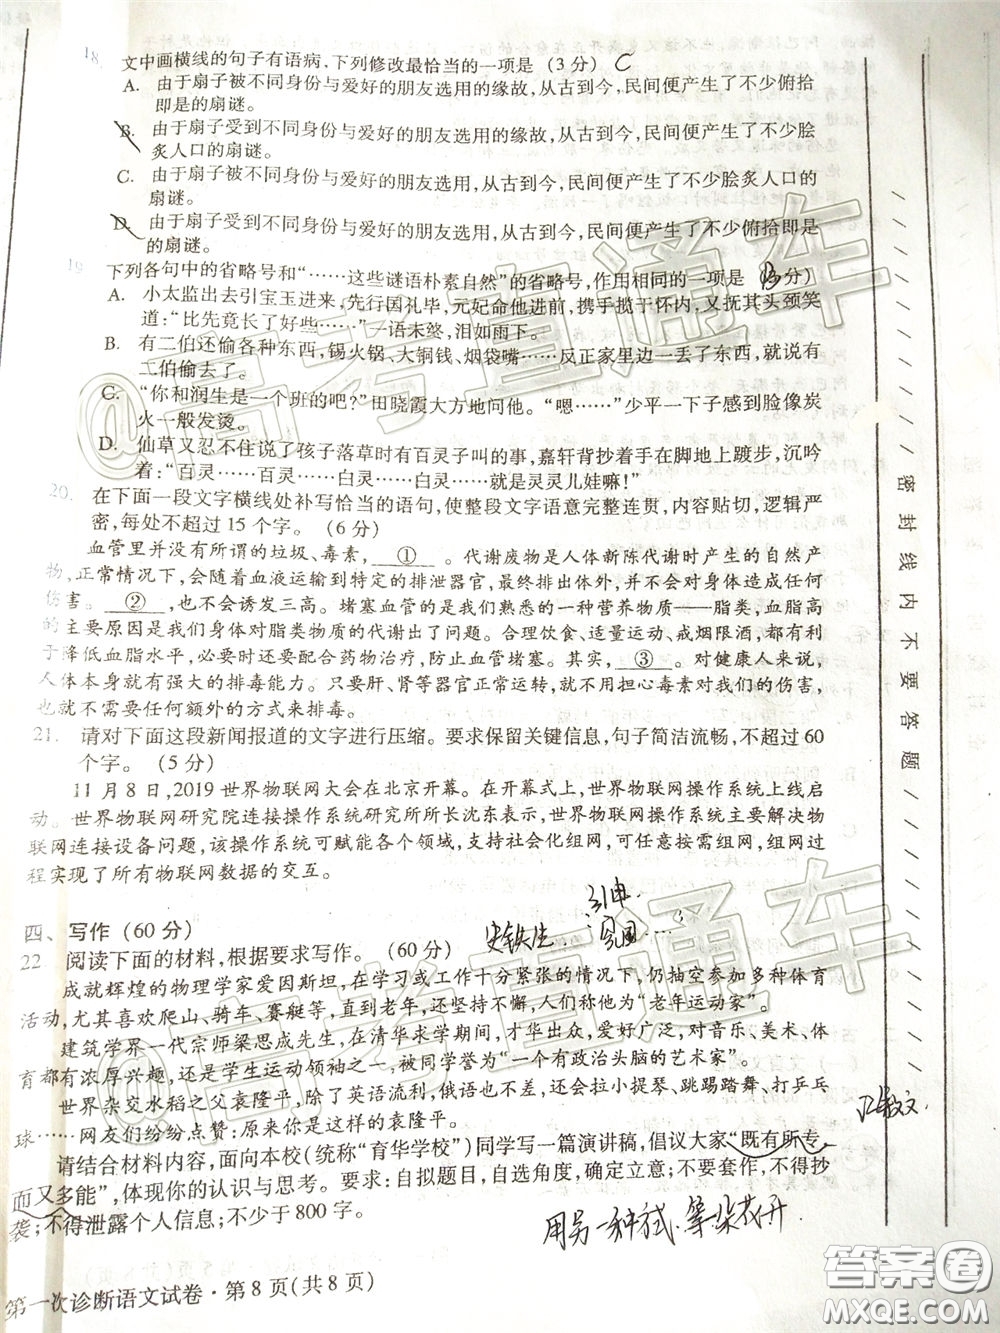 18. 文中画横线的句子有语病,下列修改最恰当的一项是 (3分) C
A. 由于扇子被不同身份与爱好的朋友选用的缘故,从古到今,民间便产生了不少俯拾
即是的扇谜。
B. 由于扇子受到不同身份与爱好的朋友选用的缘故,从古到今,民间便产生了不少脍
炙人口的扇谜。
C. 由于扇子被不同身份与爱好的朋友选用,从古到今,民间便产生了不少脍炙人口的
扇谜。
D. 由于扇子受到不同身份与爱好的朋友选用,从古到今,民间便产生了不少俯拾即是
的扇谜。
19. 下列各句中的省略号和“……这些谜语朴素自然”的省略号,作用相同的一项是 (3分)
A. 小太监出去引宝玉进来,先行国礼毕,元妃命他进前,携手揽于怀内,又抚其头颈笑
道:“比先竟长了好些……”一语未终,泪如雨下。
B. 有二伯还偷各种东西,锡火锅、大铜钱、烟袋嘴……反正家里边一丢了东西,就说有
二伯偷去了。
C. “你和润生是一个班的吧?”田晓霞大方地问他。“嗯……”少平一下子感到脸像炭
火一般发烫。
D. 仙草又忍不住说了孩子落草时有百灵子叫的事,嘉轩背抄着手在脚地上踱步,沉吟
着:“百灵……百灵……白灵……白灵……就是灵灵儿娃嘛!”
20. 在下面一段文字横线处补写恰当的语句,使整段文字语意完整连贯,内容贴切,逻辑严
密,每处不超过15个字。 (6分)
血管里并没有所谓的垃圾、毒素, ① 。代谢废物是人体新陈代谢时产生的自然产
物,正常情况下,会随着血液运输到特定的排泄器官,最终排出体外,并不会对身体造成任何
伤害。 ② ,也不会诱发三高。堵塞血管的是我们熟悉的一种营养物质——脂类,血脂高
的主要原因是我们身体对脂类物质的代谢出了问题。合理饮食、适量运动、戒烟限酒,都有利
于降低血脂水平,必要时还要配合药物治疗,防止血管堵塞。其实, ③ 。对健康人来说,
人体本身就有强大的排毒能力。只要肝、肾等器官正常运转,就不用担心毒素对我们的伤害,
也就不需要任何额外的方式来排毒。
21. 请对下面这段新闻报道的文字进行压缩。要求保留关键信息,句子简洁流畅,不超过60
个字。 (5分)
11月8日,2019世界物联网大会在北京开幕。在开幕式上,世界物联网操作系统上线启
动。世界物联网研究院连接操作系统研究所所长沈东表示,世界物联网操作系统主要解决物
联网连接设备问题,该操作系统可赋能各个领域,支持社会化组网,可任意按需组网,组网过
程实现了所有物联网数据的交互。
四、写作 (60分)
史铁生
22. 阅读下面的材料,根据要求写作。 (60分)
成就辉煌的物理学家爱因斯坦,在学习或工作十分紧张的情况下,仍抽空参加多种体育
活动,尤其喜欢爬山、骑车、赛艇等,直到老年,还坚持不懈,人们称他为“老年运动家”。
建筑学界一代宗师梁思成先生,在清华求学期间,才华出众,爱好广泛,对音乐、美术、体
育都有浓厚兴趣,还是学生运动领袖之一,被同学誉为“一个有政治头脑的艺术家”。
世界杂交水稻之父袁隆平,除了英语流利,俄语也不差,还会拉小提琴、跳踢踏舞、打乒乓
球……网友们纷纷点赞:原来你是这样的袁隆平。
请结合材料内容,面向本校(统称“育华学校”)同学写一篇演讲稿,倡议大家“既有所专
而又多能”,体现你的认识与思考。要求:自拟题目,自选角度,确定立意;不要套作,不得抄
袭;不得泄露个人信息;不少于800字。
第一次诊断语文试卷·第8页(共8页)
密封线内不要答题
@高考直通车
@高考直通车
答案圈
MXQE.COM